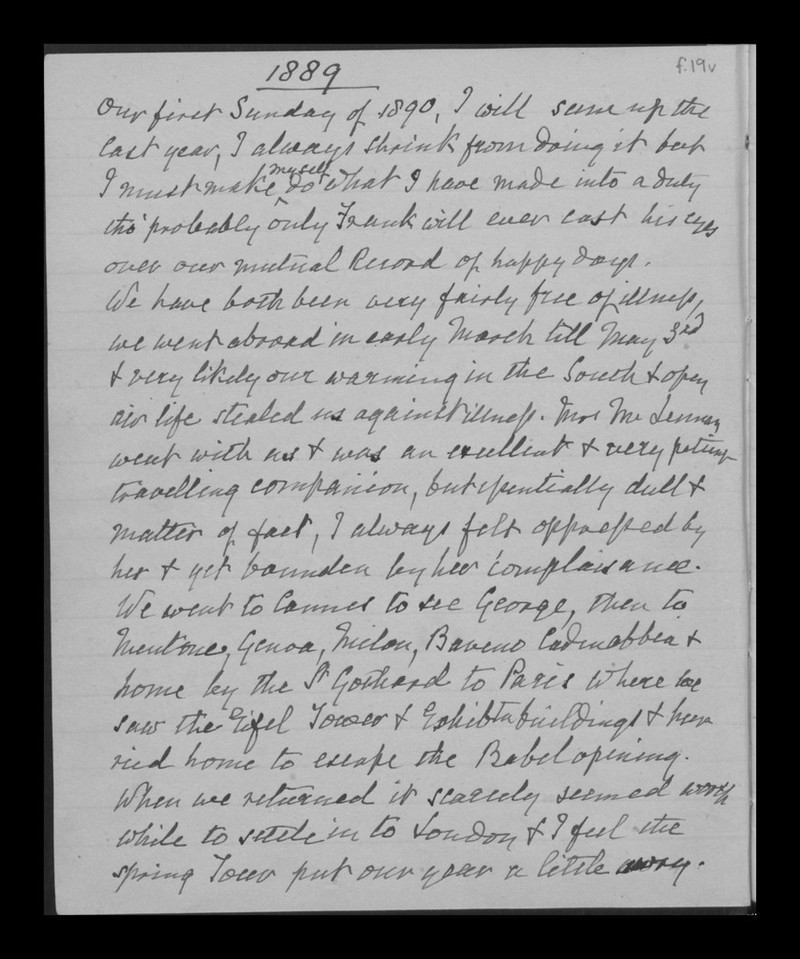 1889
f.19v
Our first Sunday of 1890, I will sum up the
last year, I always shrink from doing it but
I must make myself do what I have made into a duty
tho' probably only Frank will ever cast his eyes
over our mutual Record of happy days.
We have both been very fairly free of illness,
we went abroad in early March till May 3rd
& very likely our warming in the South & open
air life steeled us against illness. Mrs Mc Lennan
went with us & was an excellent & very
travelling companion, but essentially dull &
matter of fact, I always felt oppressed by
her & yet bounden by her complaisance.
We went to Cannes to see George, then to
Mentone, Genoa, Milan, Baveno Cadenabbia &
home by the St Gothard to Paris where we
saw the Eifel Tower & Exhibtn buildings & hur
ried home to escape the Babel opening.
When we returned it scarcely seemed worth
while to settle in to London & I feel the
spring Tour put our year a little awry.